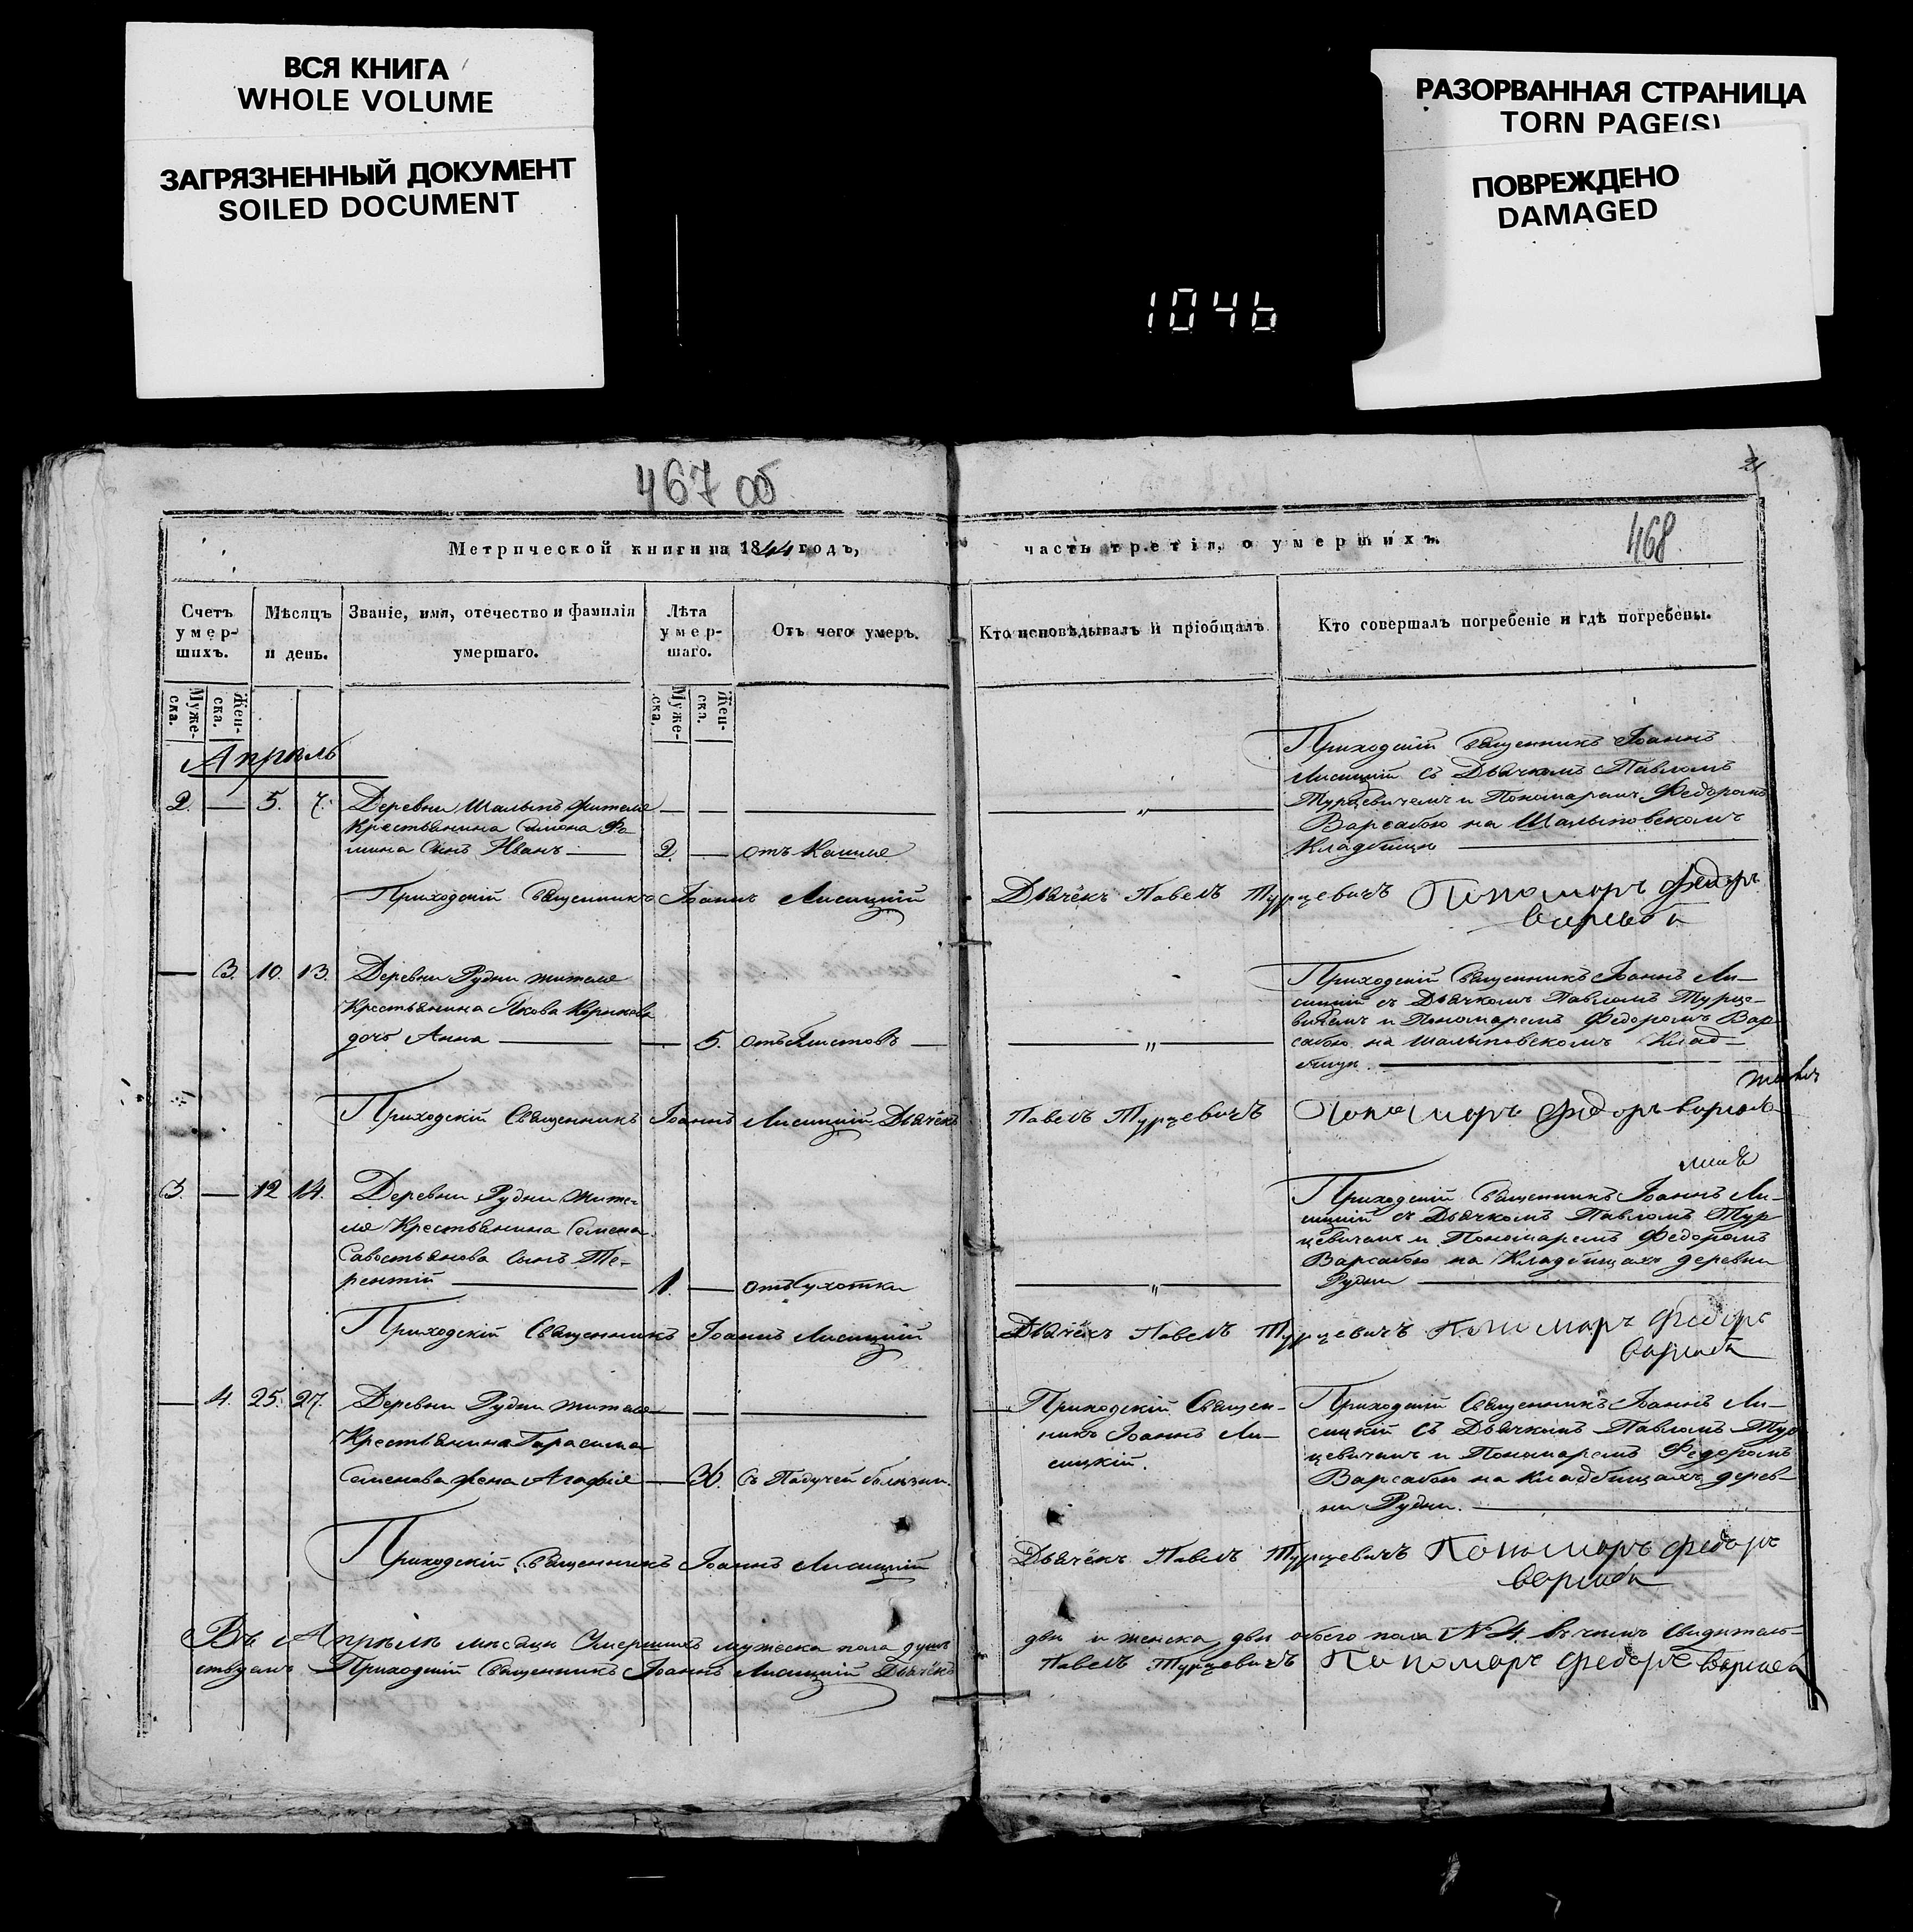 ВСЯ КНИГА
WHOLE VOLUME
ЗАГРЯЗНЕННЫЙ ДОКУМЕНТ
SOILED DOCUMENT
РАЗОРВАННАЯ СТРАНИЦА
TORN PAGE(S)
ПОВРЕЖДЕНО
DAMAGED
1046
467 об
21
468
Метрической книги на 1844 годъ,
часть третія, о умершихъ.
Счетъ умер-шихъ.
Мѣсяцъ и день.
Званіе, имя, отечество и фамилія умершаго.
Лѣта умер-шаго.
Отъ чего умеръ.
Кто исповѣдывалъ и пріобщалъ
Кто совершалъ погребеніе и гдѣ погребены.
Муже-ска.
Жен-ска.
Муже-ска.
Жен-ска.
Апрѣль
2. — 5. 7. Деревни Шалыпъ жителя
Крестьянина Симона Фо-
мина Сынъ Иванъ — 2. — отъ Кашля
Приходскій Священникъ Іоаннъ
Лисицкій съ Дьячкомъ Павломъ
Турцевичемъ и Пономаремъ Федоромъ
Варсабою на Шалыповскомъ
Кладбищѣ
Приходскій Священникъ Іоаннъ Лисицкій Дьячёкъ Павелъ Турцевичъ Пономаръ Федоръ
Варсаба
— 3. 10. 13. Деревни Рудни жителя
Крестьянина Якова
дочь Анна — 5. отъ Глистовъ —
Приходскій Священникъ Іоаннъ Ли-
сицкій съ Дьячкомъ Павломъ Турце-
вичемъ и Пономаремъ Федоромъ Вар
сабою на Шалыповскомъ Клад-
бищѣ.
Приходскій Священникъ Іоаннъ Лисицкій Дьячёкъ Павелъ Турцевичъ Пономаръ Федоръ Варсаба
3. — 12 14. Деревни Рудни жите-
ля Крестьянина Семена
Савостьянова сынъ Те-
рентій — 1. — отъ Сухотки
Приходскій Священникъ Іоаннъ Ли-
сицкій съ Дьячкомъ Павломъ Тур
цевичемъ и Пономаремъ Федоромъ
Варсабою на Кладбищахъ деревни
Рудни
Приходскій Священникъ Іоаннъ Лисицкій Дьячёкъ Павелъ Турцевичъ Пономаръ Федоръ
Варсаба
— 4. 25. 27. Деревни Рудни жителя
Крестьянина Гарасима
Семенова жена Агафія — 36. Съ Падучей болѣзни.
Приходскій Священ-
никъ Іоаннъ Ли-
сицкій.
Приходскій Священникъ Іоаннъ Ли-
сицкій Съ Дьячкомъ Павломъ Тур
цевичемъ и Пономаремъ Федоромъ
Варсабою на кладбищахъ дерев-
ни Рудни.
Приходскій Священникъ Іоаннъ Лисицкій Дьячёкъ Павелъ Турцевичъ Пономаръ Федоръ
Варсаба
Въ Апрѣлѣ мѣсяцѣ Умершихъ мужеска пола душъ двѣ и женска двѣ обоего пола № 4. въ чемъ Свидѣтель-
ствуемъ Приходскій Священникъ Іоаннъ Лисицкій Дьячёкъ Павелъ Турцевичъ Пономаръ Федоръ Варсаба